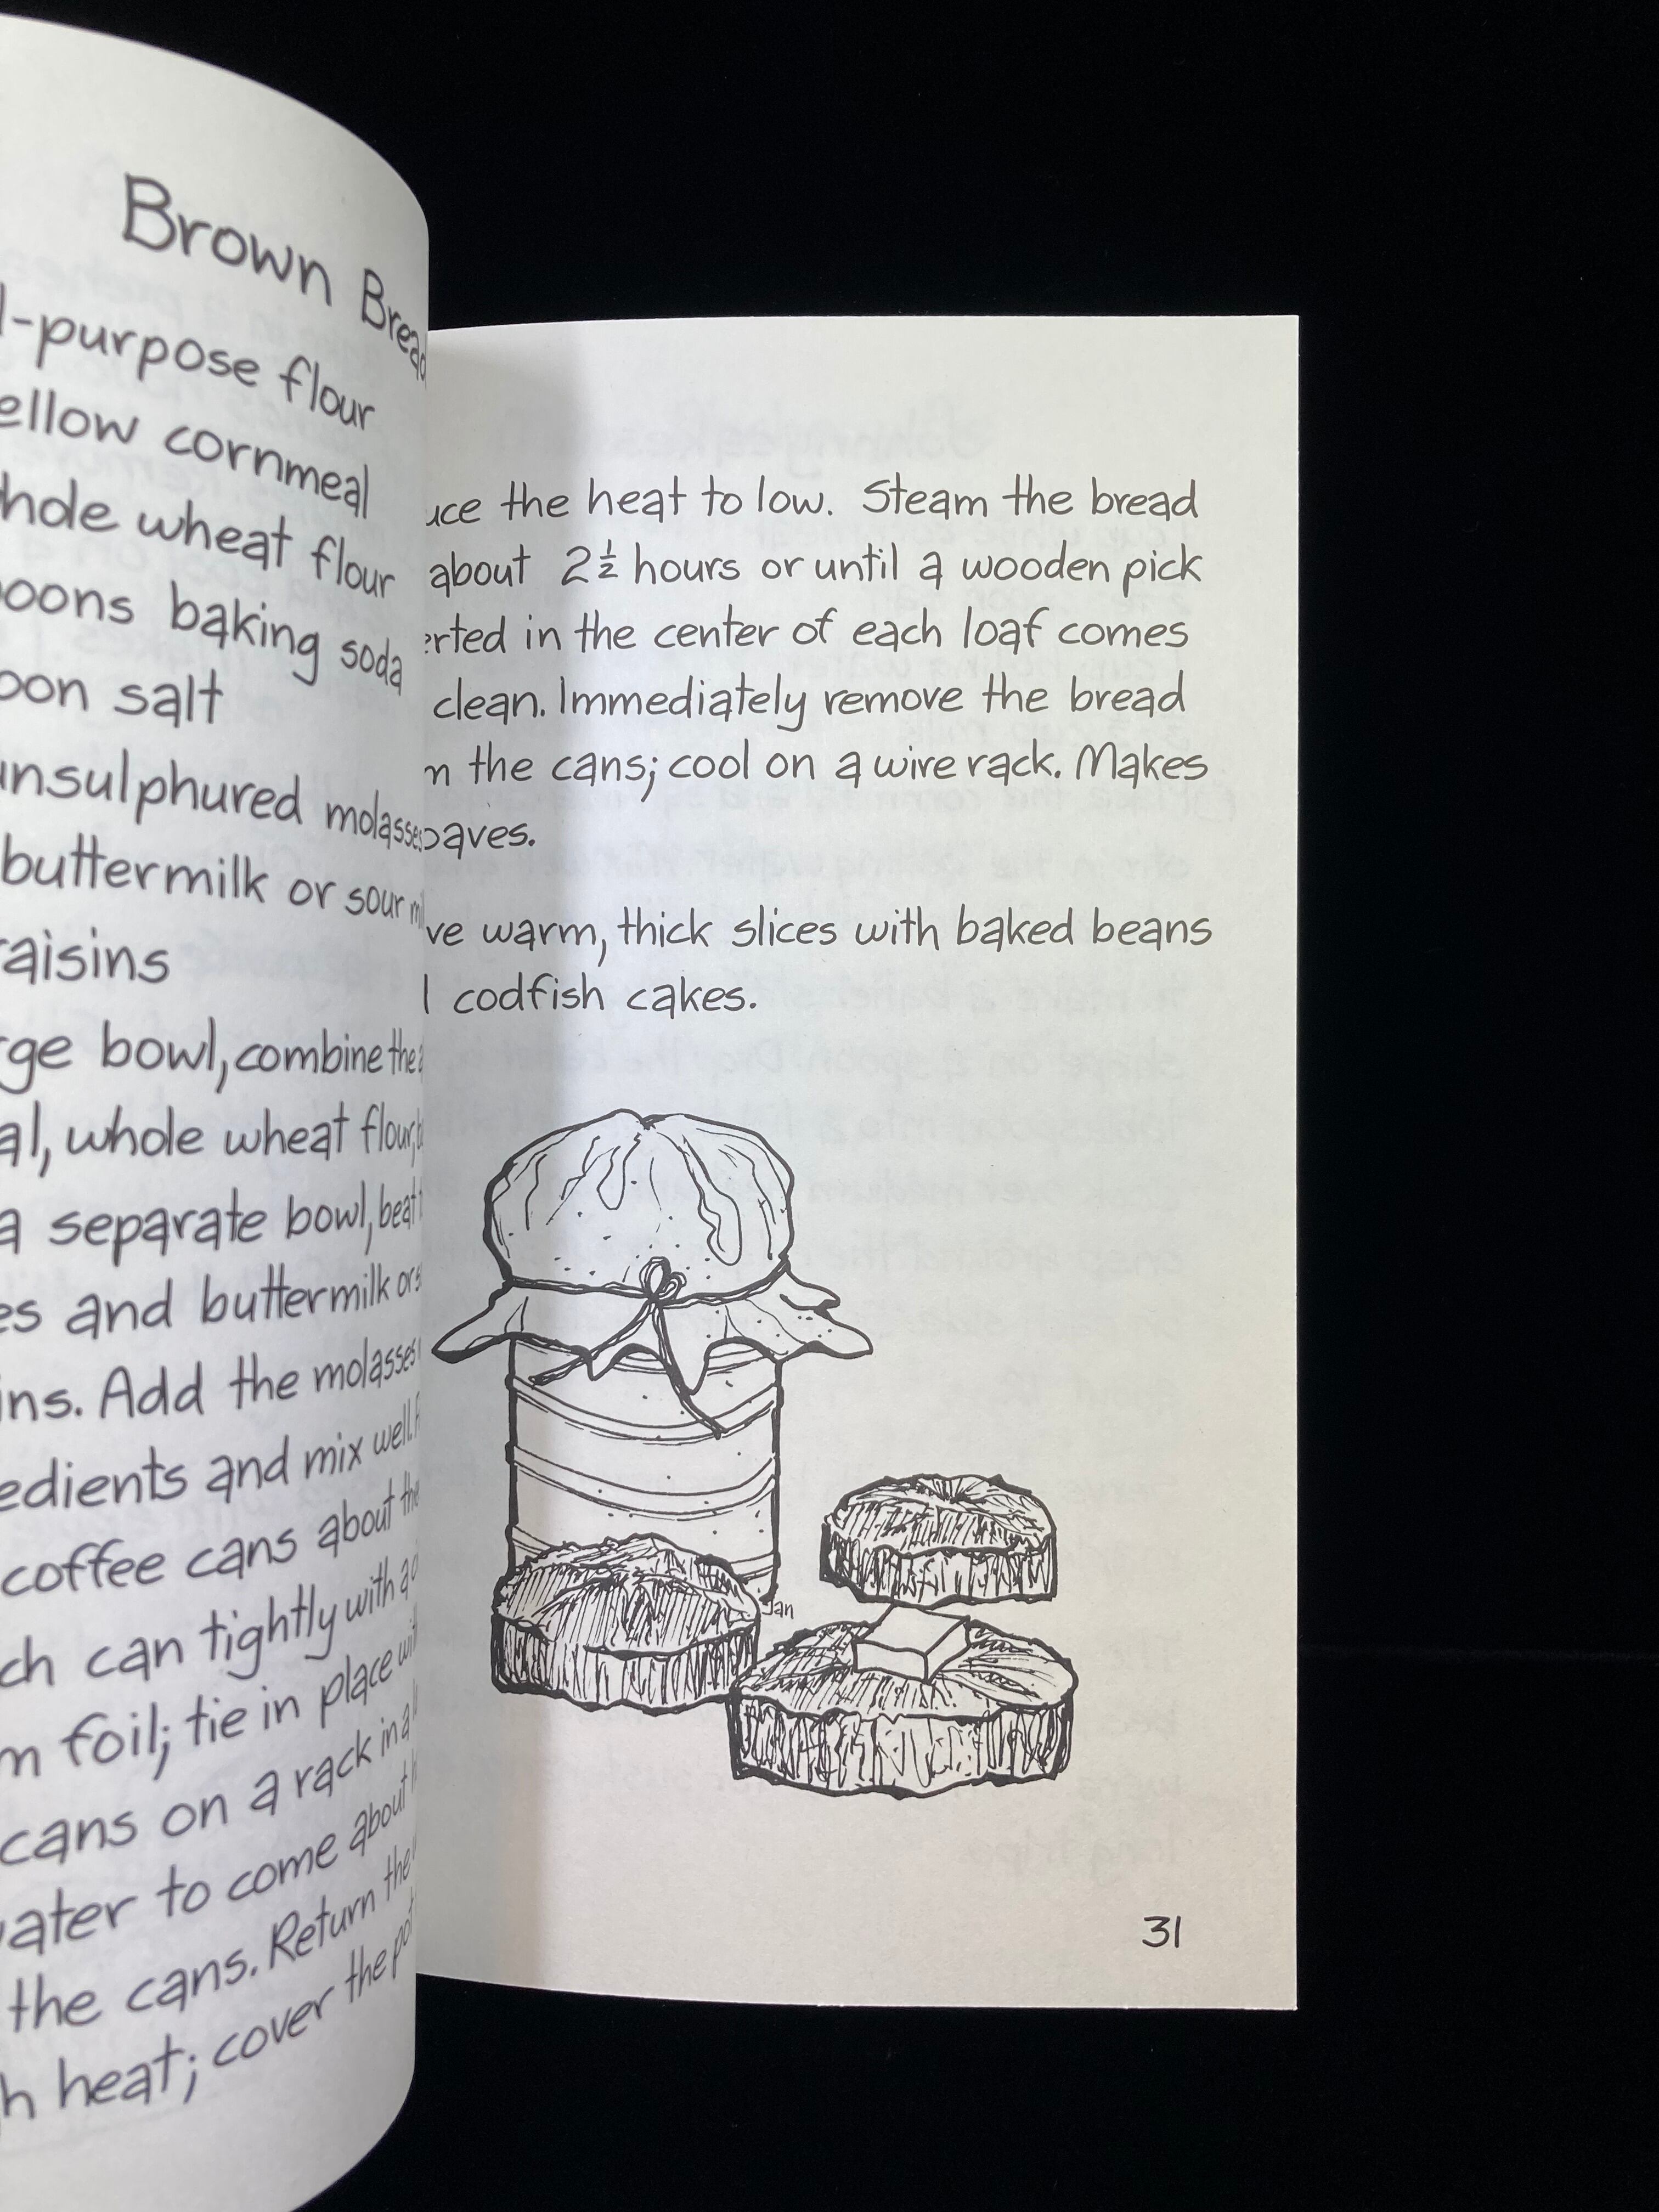 Brown Bread
l-purpose flour
ellow cornmeal
hole wheat flour
poons baking soda
oon salt
unsulphured molasses
buttermilk or sour
raisins
rge bowl, combine the
al, whole wheat flour,
a separate bowl, beat
es and buttermilk or
ins. Add the molasses
edients and mix well.
coffee cans about the
ch can tightly with
m foil; tie in place
cans on a rack in
water to come about
the cans. Return the
h heat; cover the pot
uce the heat to low. Steam the bread
about 2½ hours or until a wooden pick
erted in the center of each loaf comes
clean. Immediately remove the bread
m the cans; cool on a wire rack. Makes
oaves.
ve warm, thick slices with baked beans
codfish cakes.
Jan
31